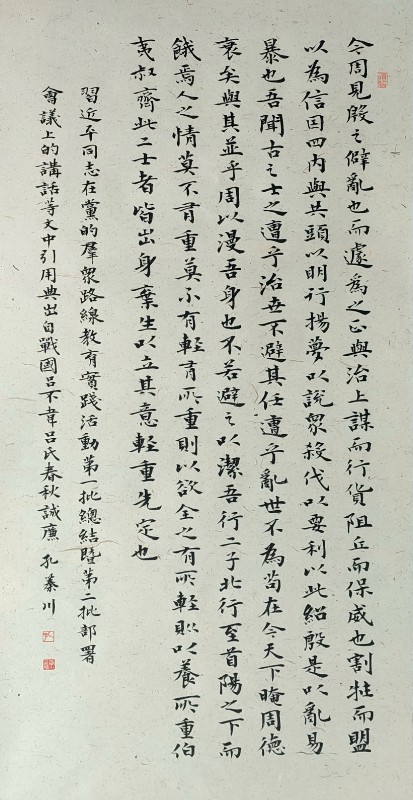 今周見殷之僻亂也而遽為之正與治上謀而行貨阻丘而保威也割牲而盟
以為信因四內與共頭以明行揚夢以說眾殺伐以要利以此紹殷是以亂易
暴也吾聞古之士之遭乎治世不避其任遭乎亂世不為苟在今天下闇周德
衰矣與其並乎周以漫吾身也不若避之以潔吾行二子北行至首陽之下而
餓焉人之情莫不有重莫不有輕有所重則以欲全之有所輕則以養所重伯
夷叔齊此二士者皆出身棄生以立其意輕重先定也
習近平同志在黨的羣眾路線教育實踐活動第一批總結暨第二批部署
會議上的講話等文中引用典出自戰國呂不韋呂氏春秋誠廉 孔綦川